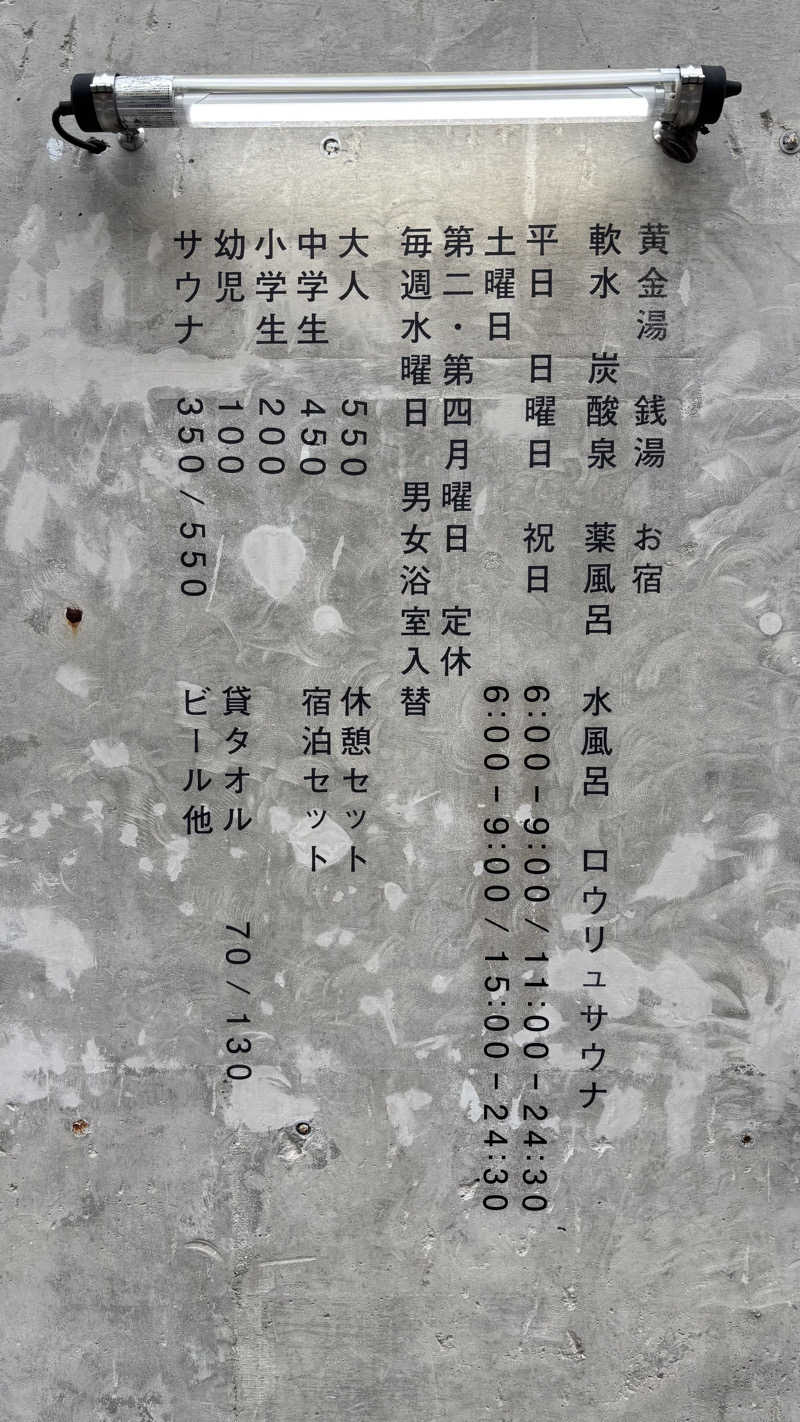 黄金湯　銭湯　お宿
軟水　炭酸泉　薬風呂　水風呂　ロウリュサウナ
平日　日曜日　祝日　6:00－9:00/11:00－24:30
土曜日　6:00－9:00/15:00－24:30
第二・第四月曜日　定休
毎週水曜日　男女浴室入替
大人　550　休憩セット
中学生　450　宿泊セット
小学生　200
幼児　100　貸タオル　70/130
サウナ　350/550　ビール他